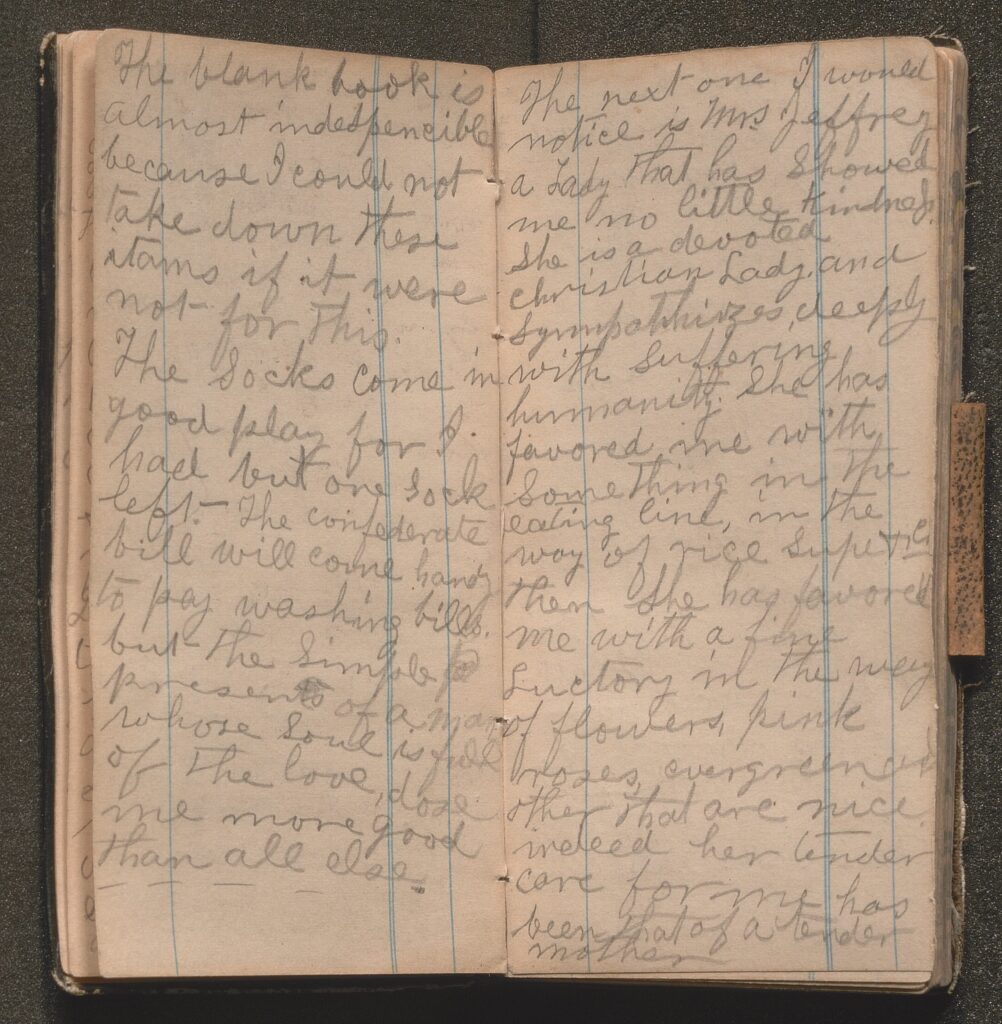 The blank book is
almost indespencible
because I could not
take down these
itams if it were
not for this.
The Socks come in
good play for I.
had but one Sock
left. The confederate
bill will come handy
to pay washing bills.
but the Simple
presents of a man
whose Soul is full
of the love, dose
me more good
than all else.
The next one I would
notice is Mrs Jeffrey
a Lady that has Showed
me no little kindness.
She is a devoted
christian Lady, and
Sympathizes, deeply
with Suffering
humanity. She has
favored me with
Something in the
eating line, in the
way of rice Supe &c
then She has favored
me with a fine
in the way
of flowers, pink
roses, evergreen and
other that are nice
indeed her tender
care for me has
been that of a tender
mother